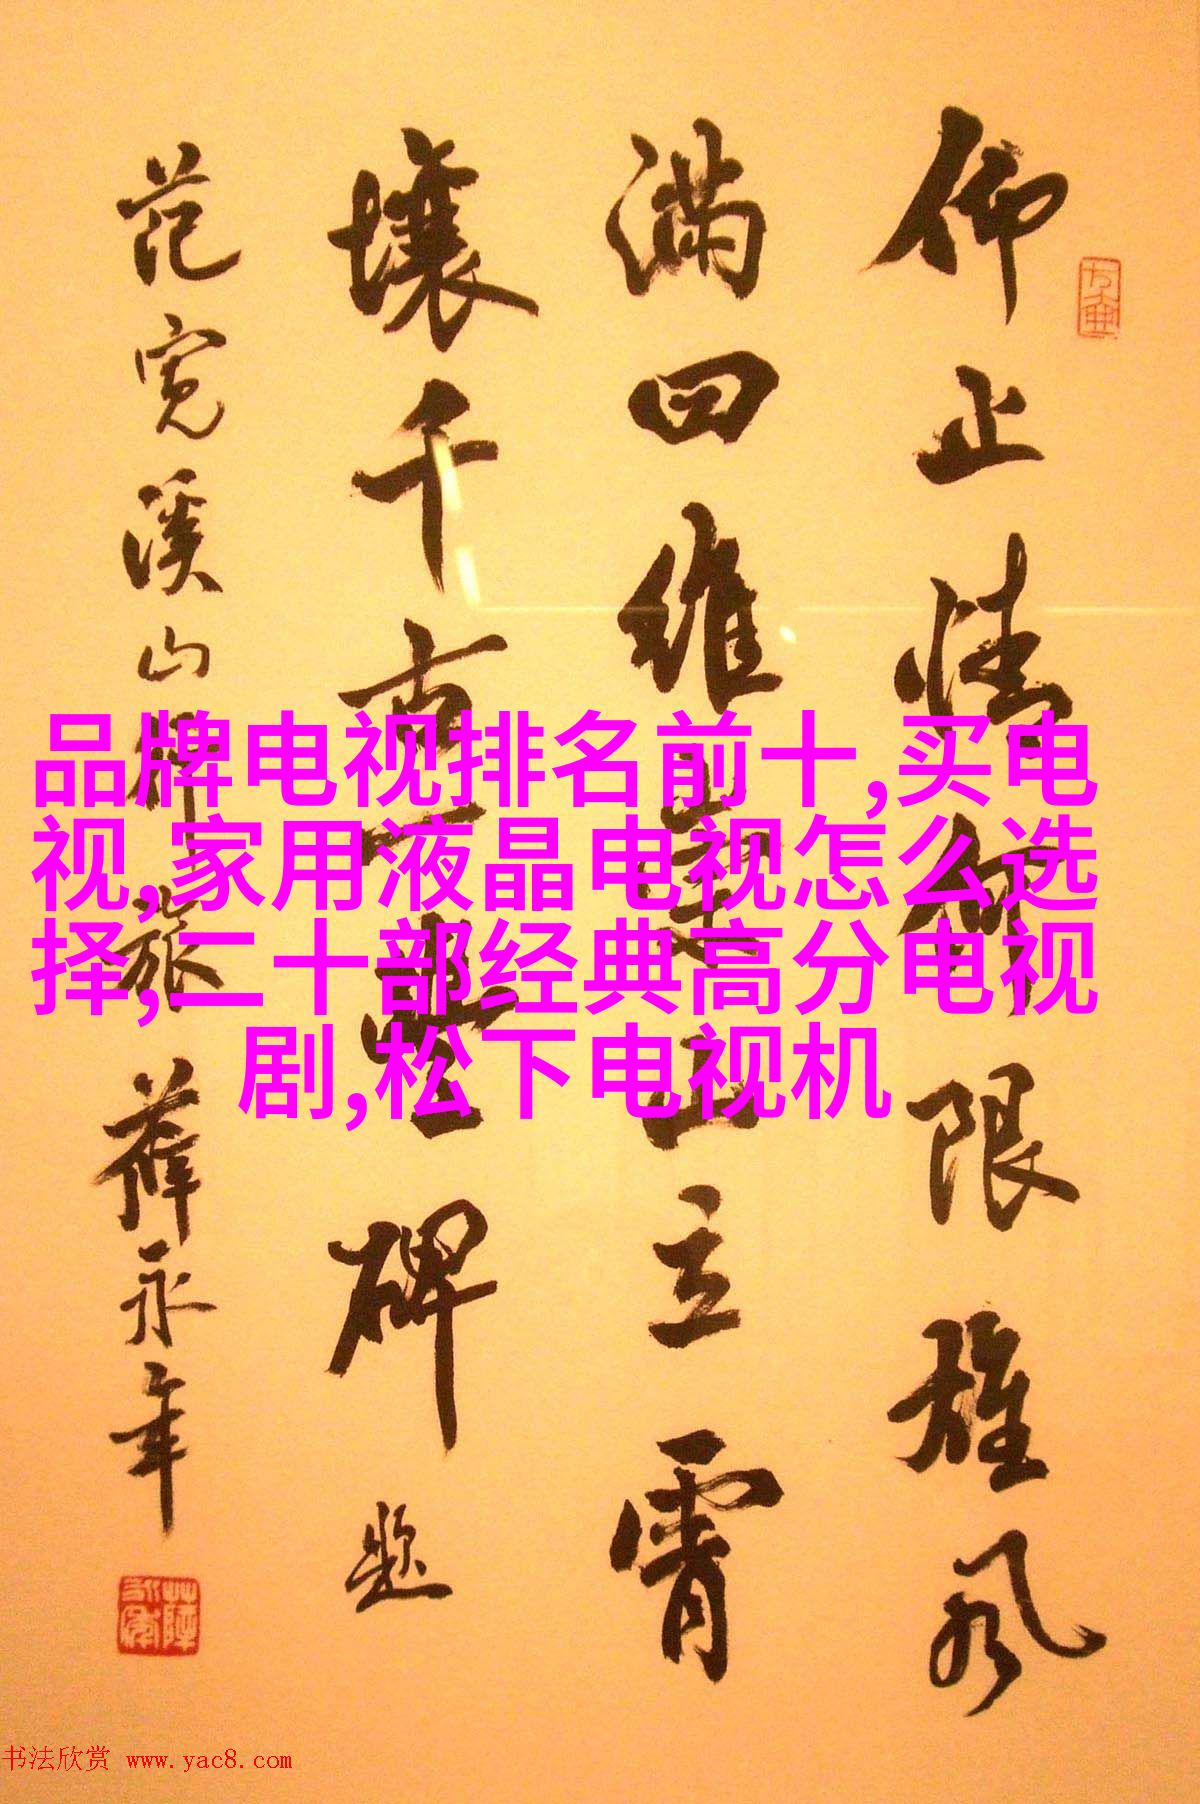 仰止情何限雄风
满四维崇山立霄
壤千古一丰碑 题
范宽溪山行旅 薛永年
品牌电视排名前十,买电
视,家用液晶电视怎么选
择,二十部经典高分电视
剧,松下电视机
书法欣赏 www.yac8.com